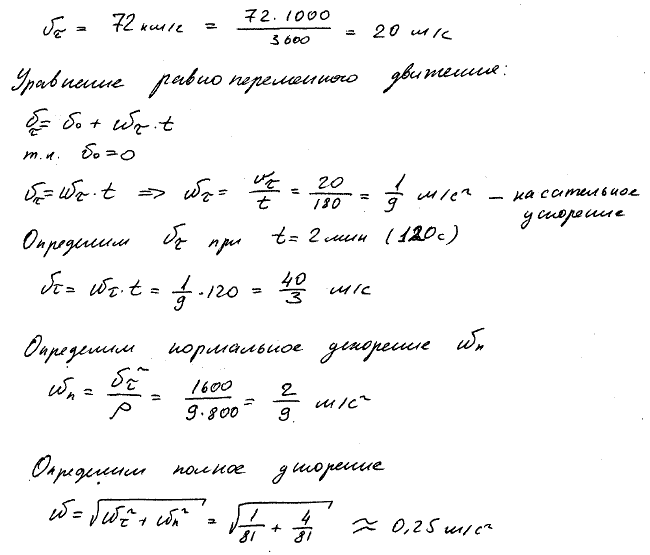 υτ = 72 км/с = 72.1000/3600 = 20 м/с
Уравнение равнопеременного движения:
υτ = υ₀ + wτ·t
т.к. υ₀=0
υτ=wτ·t => wτ = υτ/t = 20/180 = 1/9 м/с² – касательное
ускорение
Определим υτ при t=2мин (120с)
υτ = wτ·t = 1/9·120 = 40/3 м/с
Определим нормальное ускорение wn
wn = υτ²/ρ = 1600/9·800 = 2/9 м/с²
Определим полное ускорение
w=√wτ²+wn² = √1/81 + 4/81 ≈ 0,25м/с²